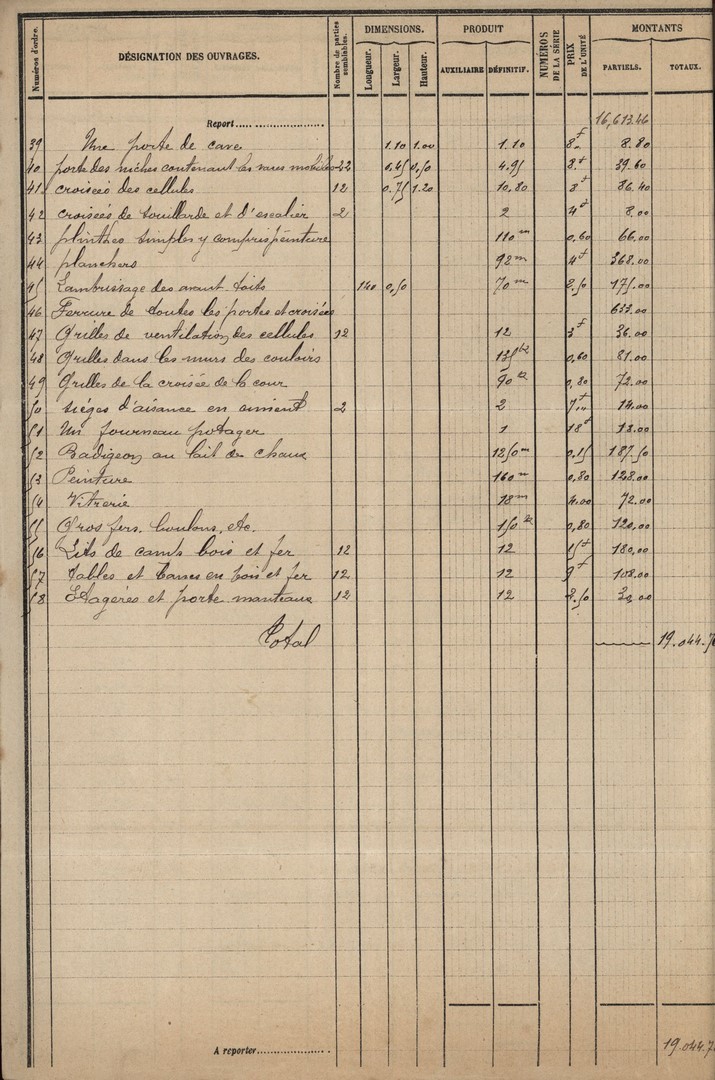 Numéros d'ordre. DÉSIGNATION DES OUVRAGES. Nombre de parties semblables. DIMENSIONS. Longueur. Largeur. Hauteur. PRODUIT AUXILIAIRE DÉFINITIF. NUMÉROS DE LA SÉRIE PRIX DE L'UNITÉ MONTANTS PARTIELS. TOTAUX.
Report 16,613.46
39 Une porte de cave 1.10 1.00 1.10 8f 8.80
40 portes des niches contenant les vases mobiles 22 0,45 0,50 4.95 8f 39.60
41 croisées des cellules 12 0.75 1.20 10,80 8f 86.40
42 croisées de souillarde et d'escalier 2 2 4f 8.00
43 plinthes simples y compris peinture 110m 0,60 66.00
44 planchers 92m 4f 368.00
45 Lambrissage des avant-toits 140 0,50 70m 2.50 175.00
46 Ferrure de toutes les portes et croisées 633.00
47 Grilles de ventilation des cellules 12 12 3f 36.00
48 Grilles dans les murs des couloirs 135k 0,60 81.00
49 Grilles de la croisée de la cour 90k 0,80 72.00
50 sièges d'aisance en ciment 2 2 7f 14.00
51 Un fourneau potager 1 18f 18.00
52 Badigeon au lait de chaux 1250m 0,15 187.50
53 Peinture 160m 0,80 128.00
54 Vitrerie 18m 4.00 72.00
55 Gros fers, boulons, etc. 150k 0,80 120,00
56 Lits de camp bois et fer 12 12 15f 180,00
57 Tables et bancs en bois et fer 12 12 9f 108.00
58 Etagères et porte-manteaux 12 12 2.50 30,00
Total 19.044.76
A reporter 19.044.7